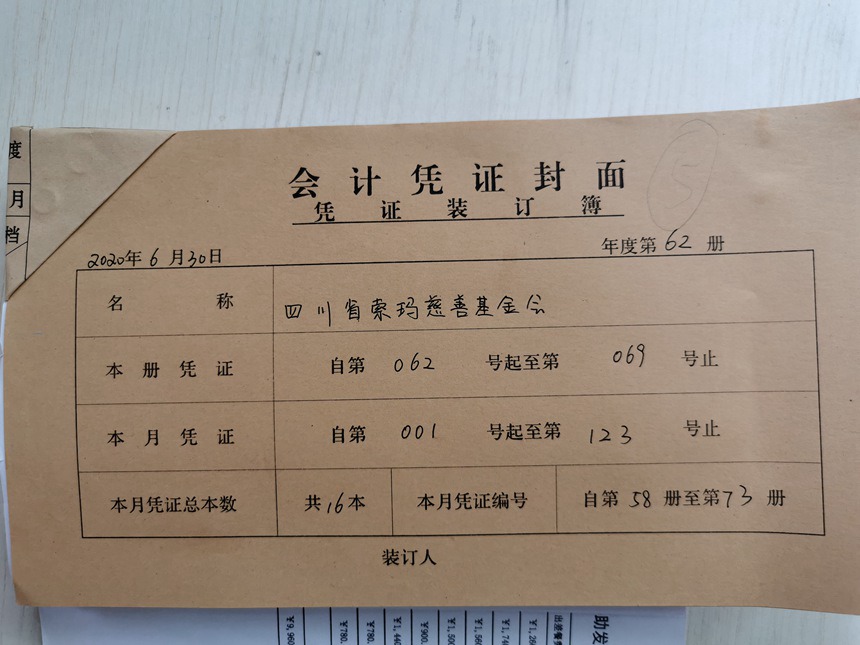 度
月
档
会计凭证封面
凭证装订簿
5
2020年6月30日
年度第62册
名称 四川省索玛慈善基金会
本册凭证 自第 062 号起至第 069 号止
本月凭证 自第 001 号起至第 123 号止
本月凭证总本数 共16本 本月凭证编号 自第58册至第73册
装订人
助发
出差餐费
¥1,28
¥1,74
¥1,56
¥1,50
¥900.
¥1,44
¥780.
¥780.
¥9,960